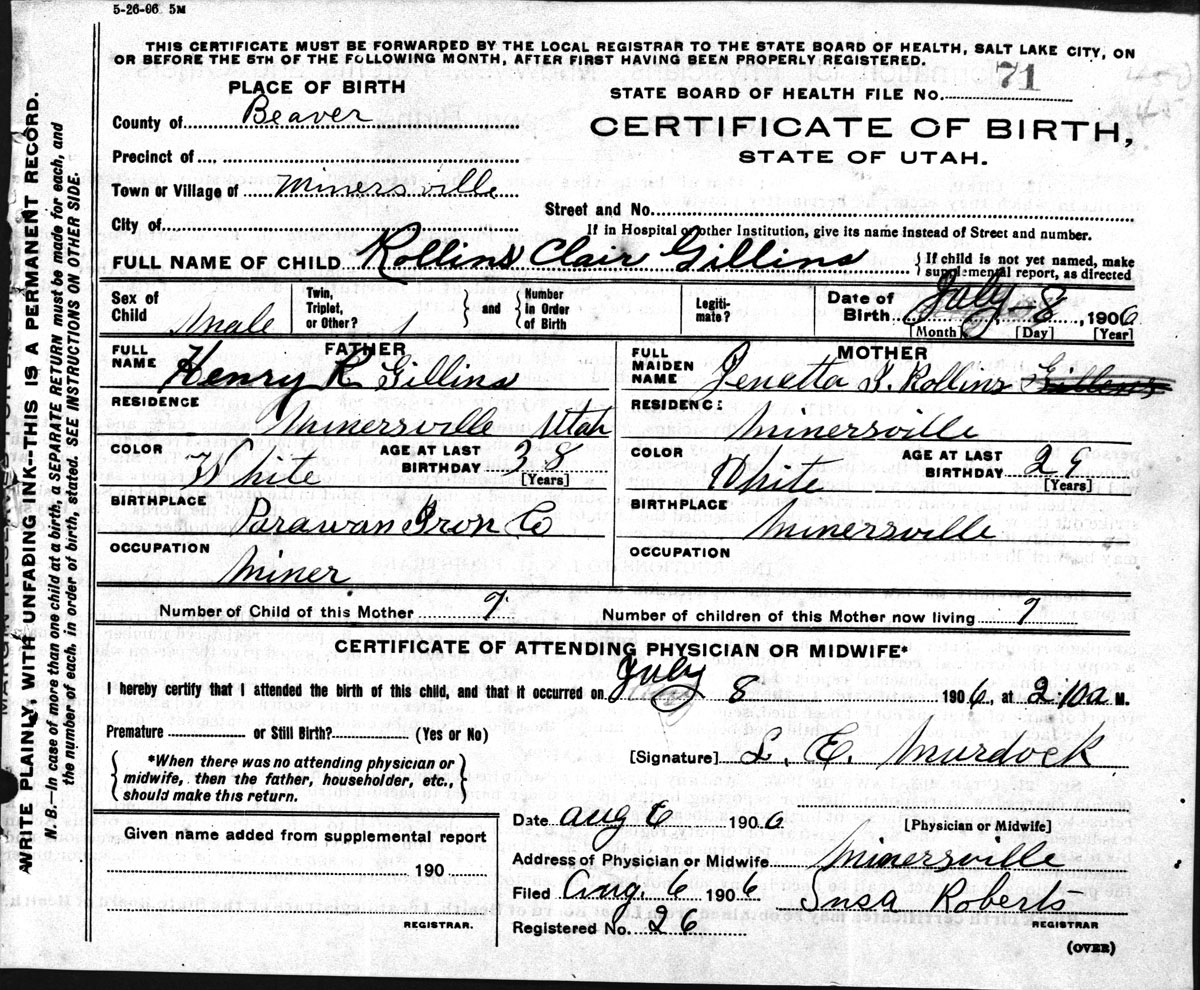 5-26-06 5M
THIS CERTIFICATE MUST BE FORWARDED BY THE LOCAL REGISTRAR TO THE STATE BOARD OF HEALTH, SALT LAKE CITY, ON
OR BEFORE THE 5TH OF THE FOLLOWING MONTH, AFTER FIRST HAVING BEEN PROPERLY REGISTERED.
PLACE OF BIRTH
STATE BOARD OF HEALTH FILE NO. 71
County of Beaver
CERTIFICATE OF BIRTH,
STATE OF UTAH.
Precinct of
Town or Village of Minersville
Street and No.
City of
If in Hospital or other Institution, give its name instead of Street and number.
FULL NAME OF CHILD Rollins Clair Gillins { If child is not yet named, make
supplemental report, as directed
Sex of Child Male
Twin, Triplet, or Other? 1 } and { Number in Order of Birth
Legiti-mate?
Date of Birth July 8, 1906
[Month] [Day] [Year]
FATHER
FULL NAME Henry R Gillins
RESIDENCE Minersville Utah
COLOR White AGE AT LAST BIRTHDAY 38 [Years]
BIRTHPLACE Parawan Iron Co
OCCUPATION Miner
MOTHER
FULL MAIDEN NAME Jenetta Rollins Gillins
RESIDENCE: Minersville
COLOR White AGE AT LAST BIRTHDAY 29 [Years]
BIRTHPLACE Minersville
OCCUPATION
Number of Child of this Mother 7 Number of children of this Mother now living 7
CERTIFICATE OF ATTENDING PHYSICIAN OR MIDWIFE*
I hereby certify that I attended the birth of this child, and that it occurred on July 8 1906, at 2:10 a M.
Premature or Still Birth? (Yes or No)
[Signature] L. E. Murdock
*When there was no attending physician or
midwife, then the father, householder, etc.,
should make this return.
Date Aug 6 1906
[Physician or Midwife]
Given name added from supplemental report
190
REGISTRAR.
Address of Physician or Midwife Minersville
Filed Aug. 6 1906 Susa Roberts
REGISTRAR
Registered No. 26
(OVER)
WRITE PLAINLY, WITH UNFADING INK--THIS IS A PERMANENT RECORD.
N. B.—In case of more than one child at a birth, a SEPARATE RETURN must be made for each, and
the number of each, in order of birth, stated. SEE INSTRUCTIONS ON OTHER SIDE.